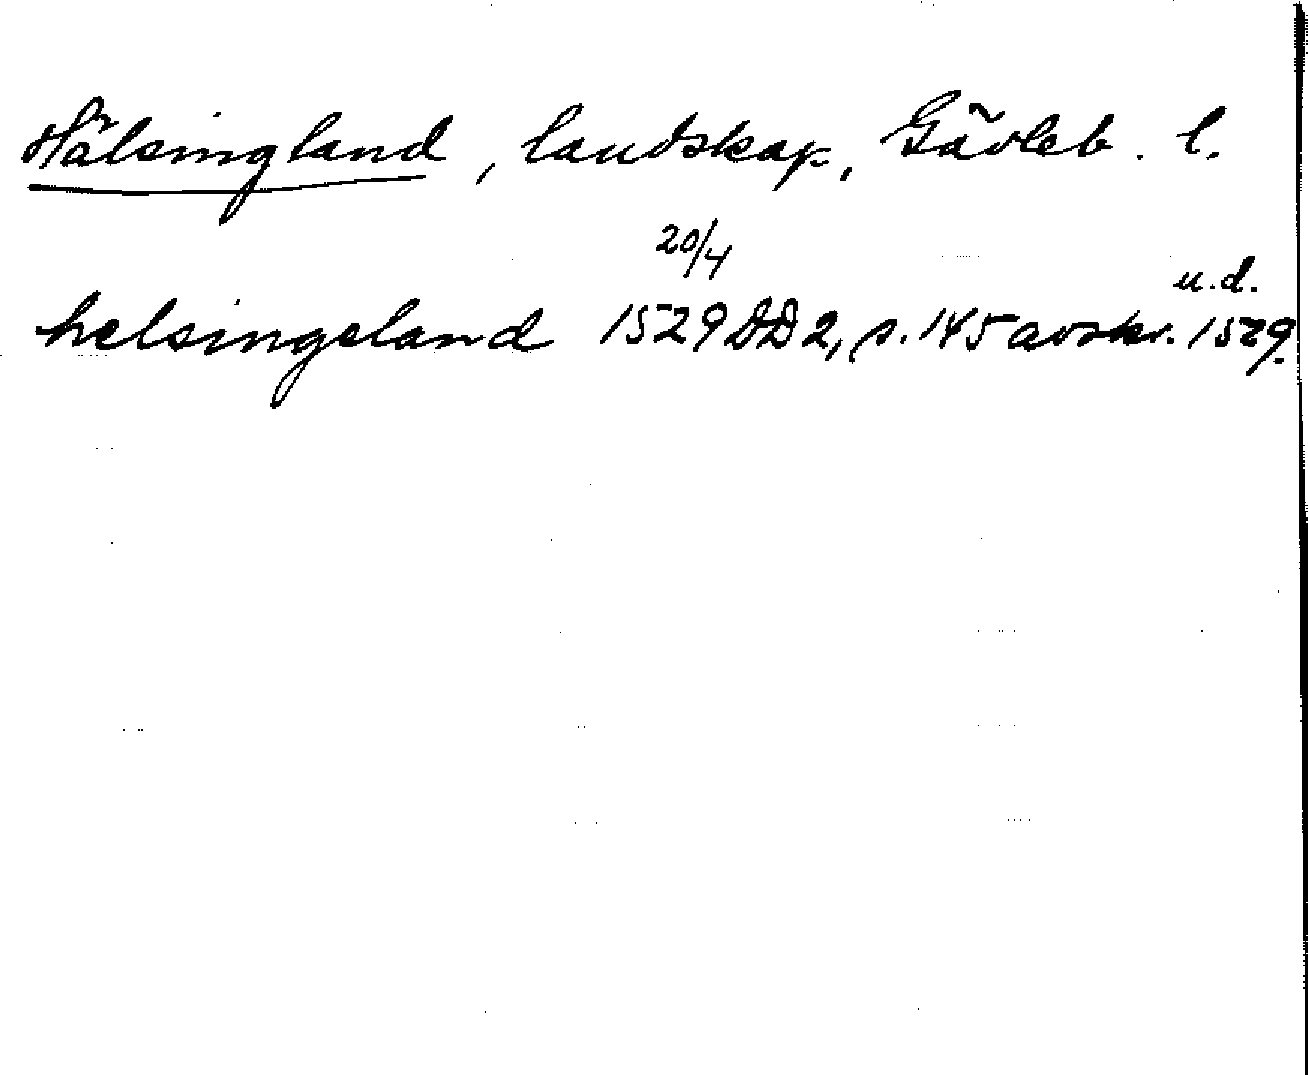 Hälsingland, landskap, Gävleb. l.
helsingeland 20/4 1529 DD 2, s. 145 avskr. u.d. 1529.